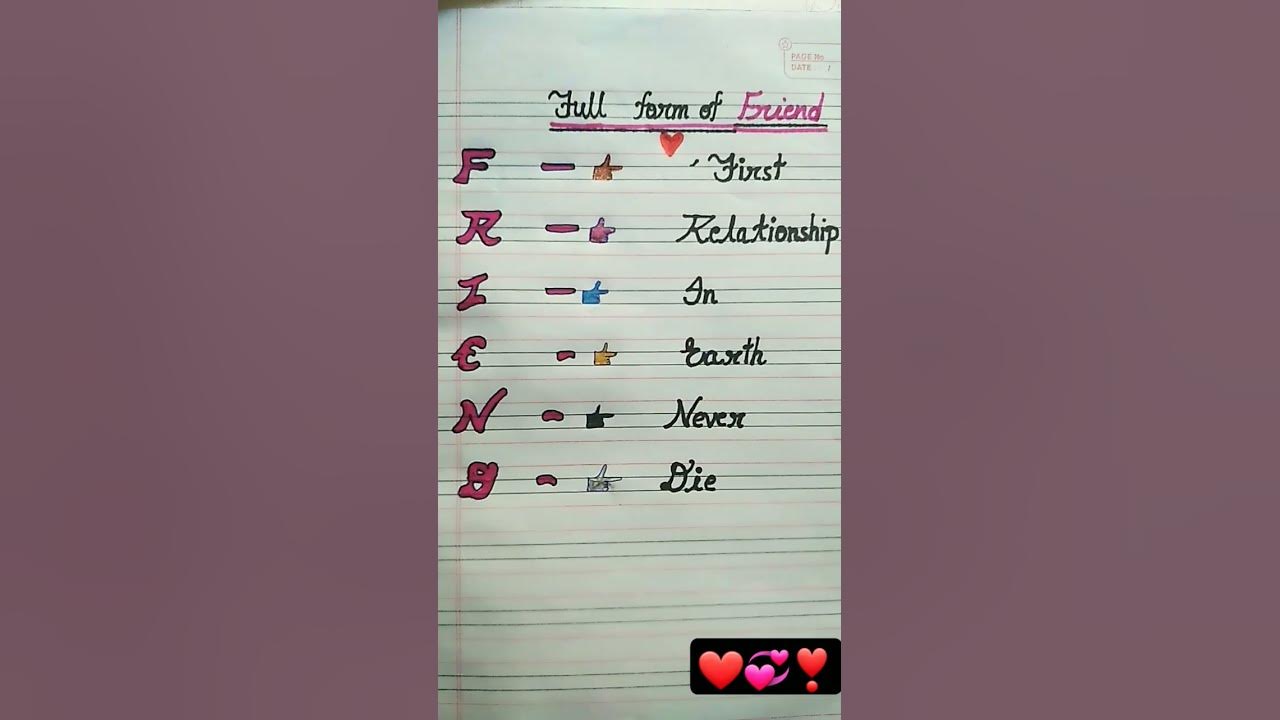 PAGE No
DATE /
Full form of Friend
F - First
R - Relationship
I - In
E - Earth
N - Never
D - Die